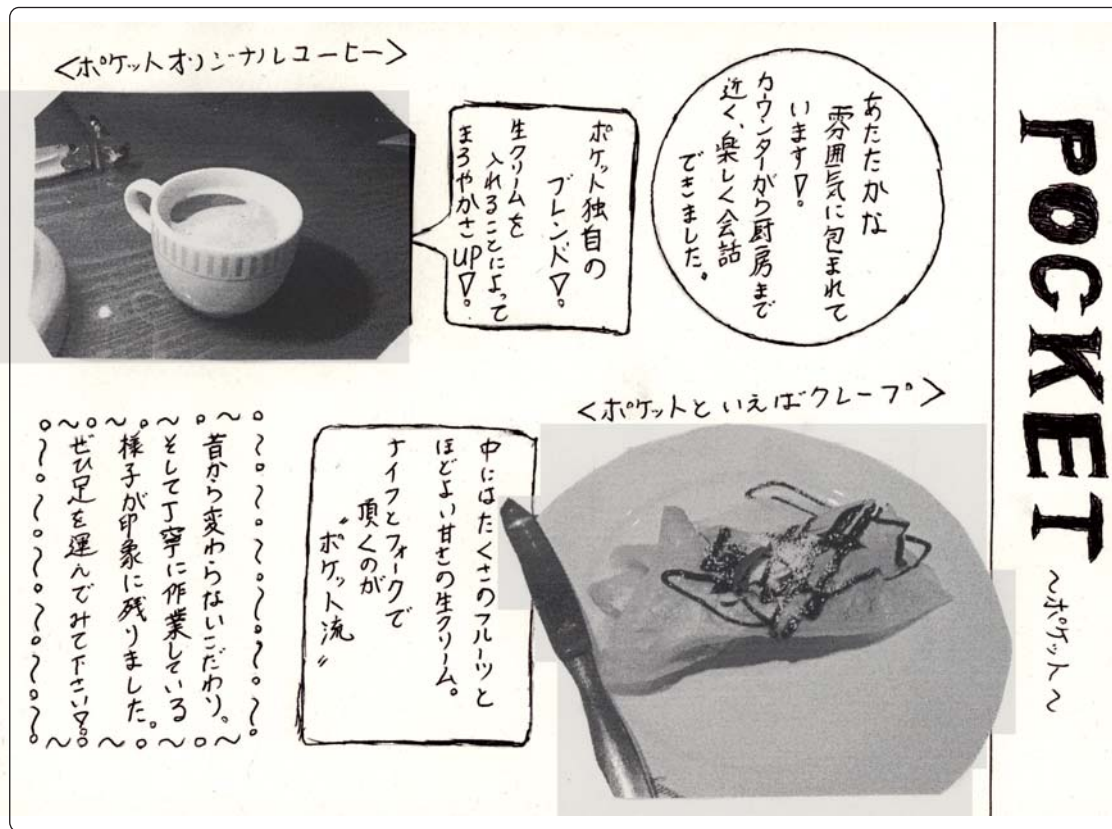 POCKET
～ポケット～
あたたかな
雰囲気に包まれて
います!。
カウンターから厨房まで
近く、楽しく会話
できました。
＜ポケットオリジナルコーヒー＞
ポケット独自の
ブレンド!。
生クリームを
入れることによって
まろやかさUP!。
＜ポケットといえばクレープ＞
中にはたくさのフルーツと
ほどよい甘さの生クリーム。
ナイフとフォークで
頂くのが
〝ポケット流〟
昔から変わらないこだわり。
そして丁寧に作業している
様子が印象に残りました。
ぜひ足を運んでみて下さい!。